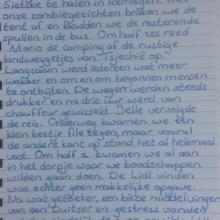 Sietzke te halen in Remagen. Met
onze zombiegezichten braken we de
tent af en laadden we de resterende
spullen in de bus. Om half zes reed
Mario de camping af de rustige
landweggetjes van Tsjechië op.
Langzaam werd iedereen wat meer
wakker en om en om begonnen mensen
te ontbijten. De wegen werden steeds
drukker en na drie uur werd van
chauffeur gewisseld. Jelle vervolgde
de reis. Onderweg kwamen we een
klein beetje file tegen, maar vooral
de andere kant op stond het al helemaal
vast. Om half 2 kwamen we al aan
in het dorpje waar we boodschappen
wilden gaan doen. De Lidl vinden
was echter geen makkelijke opgave.
Na wat getoeter, een barse middelvinger
van een Duitser en gestress vonden